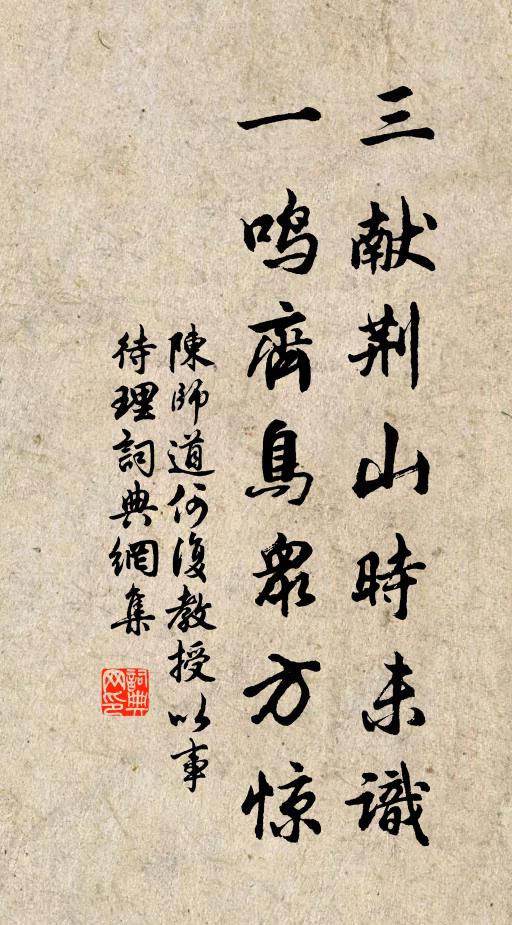 三献荆山時未識
一鸣齊鳥衆方惊
陳師道何復教授以事
待理詞典網集
詞典網印